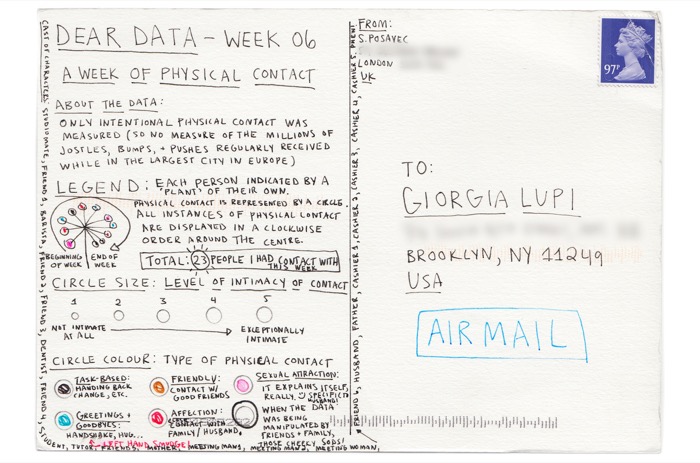 DEAR DATA – WEEK 06
A WEEK OF PHYSICAL CONTACT
ABOUT THE DATA:
ONLY INTENTIONAL PHYSICAL CONTACT WAS
MEASURED (SO NO MEASURE OF THE MILLIONS OF
JOSTLES, BUMPS, + PUSHES REGULARLY RECEIVED
WHILE IN THE LARGEST CITY IN EUROPE)
LEGEND: EACH PERSON INDICATED BY A
'PLANT' OF THEIR OWN.
PHYSICAL CONTACT IS REPRESENTED BY A CIRCLE.
ALL INSTANCES OF PHYSICAL CONTACT
ARE DISPLAYED IN A CLOCKWISE
ORDER AROUND THE CENTRE.
BEGINNING OF WEEK
END OF WEEK
TOTAL: 23 PEOPLE I HAD CONTACT WITH
THIS WEEK
CIRCLE SIZE: LEVEL OF INTIMACY OF CONTACT
1 2 3 4 5
NOT INTIMATE AT ALL
EXCEPTIONALLY INTIMATE
CIRCLE COLOUR: TYPE OF PHYSICAL CONTACT
TASK-BASED:
HANDING BACK
CHANGE, ETC.
FRIENDLY:
CONTACT W/
GOOD FRIENDS
SEXUAL ATTRACTION:
IT EXPLAINS ITSELF,
REALLY. :) SPECIFIC TO
HUSBAND!
GREETINGS +
GOODBYES:
HANDSHAKE, HUG...
AFFECTION:
CONTACT WITH
FAMILY/HUSBAND.
WHEN THE DATA
WAS BEING
MANIPULATED BY
FRIENDS + FAMILY,
THOSE CHEEKY SODS!
LEFT HAND SMUDGE!
CAST OF CHARACTERS: STUDIOMATE, FRIEND 1, BARISTA, FRIEND 2, FRIEND 3, DENTIST, FRIEND 4, STUDENT, TUTOR, FRIEND 5, MOTHER, MEETING MAN 1, MEETING MAN 2, MEETING WOMAN,
FRIEND 6, HUSBAND, FATHER, CASHIER 1, CASHIER 2, CASHIER 3, CASHIER 4, CASHIER 5, PHEW!
FROM:
S. POSAVEC
LONDON
UK
97P
TO:
GIORGIA LUPI
BROOKLYN, NY 11249
USA
AIR MAIL